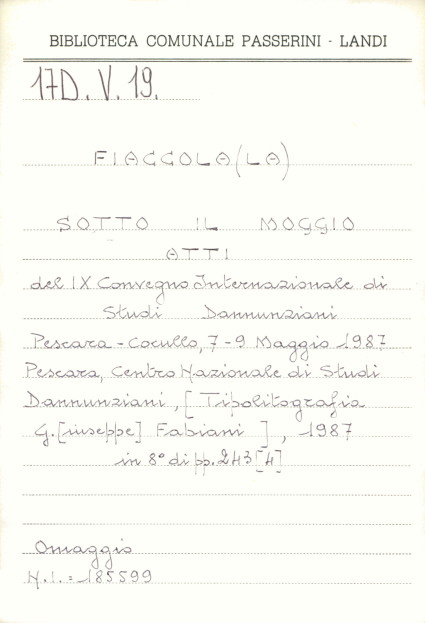 BIBLIOTECA COMUNALE PASSERINI - LANDI
17D.V.19.
FIACCOLA (LA)
SOTTO IL MOGGIO
ATTI
del IX Convegno Internazionale di
Studi Dannunziani
Pescara - Cocullo, 7-9 Maggio 1987
Pescara, Centro Nazionale di Studi
Dannunziani, [Tipolitografia
G.[iuseppe] Fabiani], 1987
in 8° di pp. 243 [4]
Omaggio
N.I.= 185599